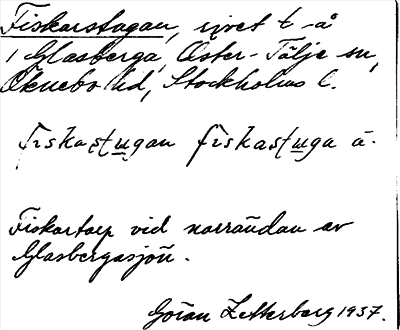 Fiskarstugan, rivet t -å
i Glasberga, Öster-Tälje sn,
Öknebo hd, Stockholms l.
fiskastugan fiskastuga å.
Fiskartorp vid norrändan av
Glasbergasjön.
Göran Zetterborg 1937.